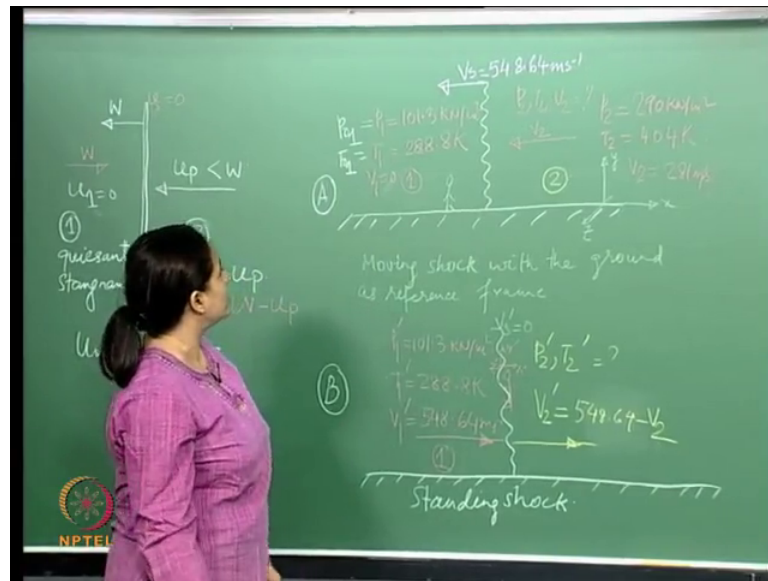 W
W
U1=0
Up < W
1
quiesant
Up
W-Up
Vs=548.64ms-1
P01 = P1=101.3KN/m²
T01 = T1= 288.8K
V1=0 1
P2 T2 V2=?
V2
P2=290KN/m²
T2=404K
V2=281m/s
A
2
y
x
Moving shock with the ground
as reference frame
Vs'=0
P1'=101.3KN/m²
T1'=288.8K
V1'=548.64ms
P2', T2' = ?
V2' = 548.64-V2
B
1
Standing shock.
NPTEL